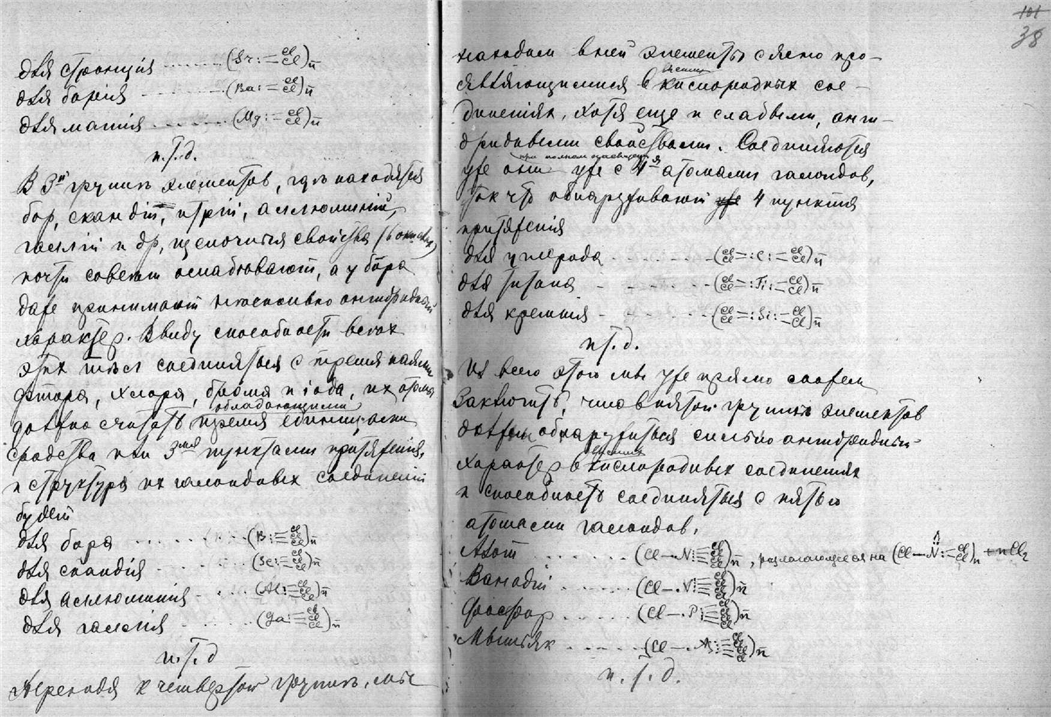 для стронція ...... (Sr:=Cl Cl)n
для барія ...... (Ba:=Cl Cl)n
для магнія ...... (Mg:=Cl Cl)n
и.т.д.
В 3й группѣ элементов, гдѣ находятся
бор, скандій, итрій, аллюминій,
галлій и др, щелочныя свойства
почти совсѣм ослабѣвают, а у бора
даже принимают нѣсколько ангидридный
характер. Ввиду способности всѣх
этих тѣл соединяться с тремя паями
фтора, хлора, брома и іода, их атомы
должно считать обладающими тремя единицами
сродства или 3мя пунктами притяженія,
и структура их галоидных соединеній
будет
для бора ...... (B:≡Cl Cl Cl)n
для скандія ...... (Sc:≡Cl Cl Cl)n
для аллюминія ...... (Al:≡Cl Cl Cl)n
для галлія ...... (Ga:≡Cl Cl Cl)n
и.т.д
Переходя к четвертой группѣ, мы
101
38
находим в ней элементы с ясно про-
являющимися в высших кислородных сое-
диненіях, хотя еще и слабыми, анги-
дридными свойствами. Соединяются
уже они при полном насыщеніи уже с 4я атомами галоидов,
так что обнаруживают уже 4 пункта
притяженія
для углерода ...... (Cl Cl=:C:=Cl Cl)n
для титана ...... (Cl Cl=:Ti:=Cl Cl)n
для кремнія ...... (Cl Cl=:Si:=Cl Cl)n
и т.д.
Из всего этого мы уже прямо можем
заключить, что в пятой группѣ элементов
должен обнаружиться сильно ангидридный
характер в высших кислородных соединеніях
и способность соединяться с пятью
атомами галоидов,
Азот ...... (Cl—N:≣Cl Cl Cl Cl)n, разлагающееся на (Cl—N:=Cl Cl)n + nCl2
Ванадій ...... (Cl—V:≣Cl Cl Cl Cl)n
Фосфор ...... (Cl—P:≣Cl Cl Cl Cl)n
Мышьяк ...... (Cl—As:≣Cl Cl Cl Cl)n
и.т.д.